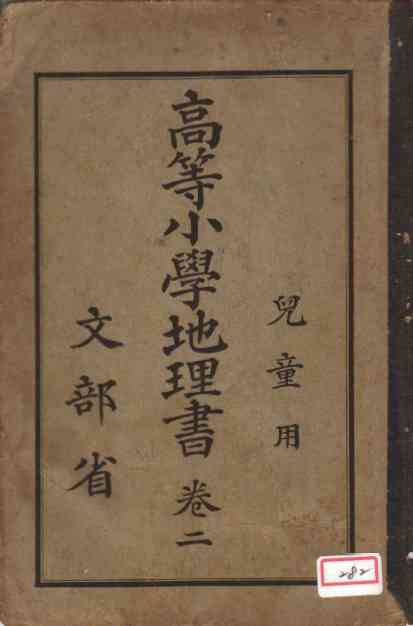 兒童用
高等小學地理書 卷二
文部省
282